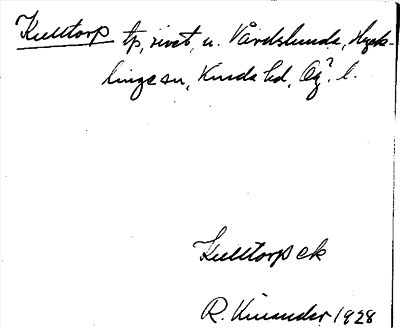 Kulltorp tp, rivet, u. Vårdslunda, Hyck-
linge sn, Kinda hd, Ög. l.
Kulltorp ek
R. Kinander 1928